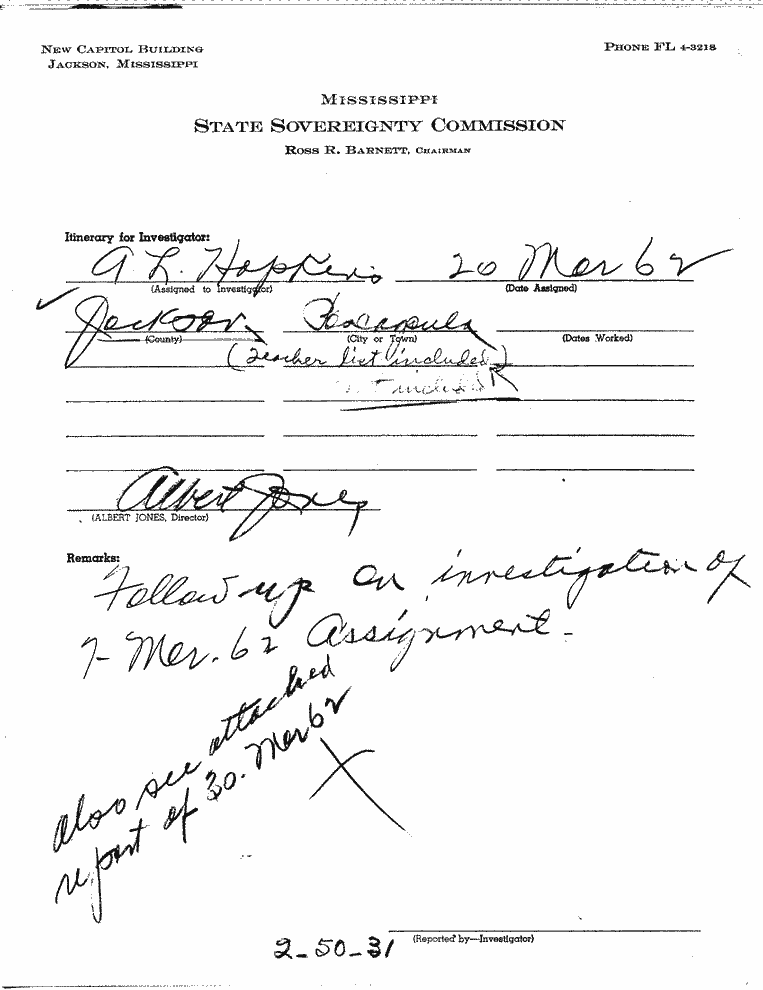 NEW CAPITOL BUILDING
JACKSON, MISSISSIPPI
PHONE FL 4-3218
MISSISSIPPI
STATE SOVEREIGNTY COMMISSION
ROSS R. BARNETT, CHAIRMAN
Itinerary for Investigator:
A L. Hopkins 20 Mar 62
(Assigned to Investigator) (Date Assigned)
Jackson Pascagoula
(County) (City or Town) (Dates Worked)
(Teacher list included)
Albert Jones
(ALBERT JONES, Director)
Remarks:
Follow up on investigation of
7- Mar. 62 Assignment-
also see attached
report of 30. Mar 62
(Reported by—Investigator)
2-50-31